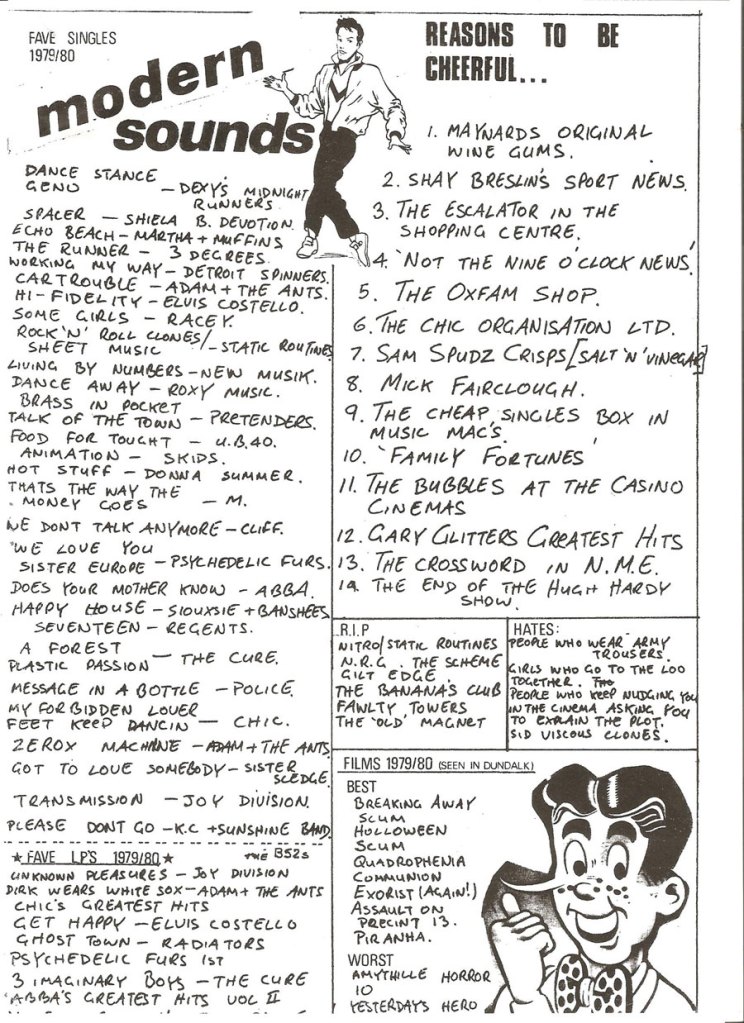 FAVE SINGLES
1979/80
modern
sounds
DANCE STANCE
GENO — DEXY'S MIDNIGHT
RUNNERS
SPACER — SHIELA B. DEVOTION
ECHO BEACH — MARTHA + MUFFINS
THE RUNNER — 3 DEGREES
WORKING MY WAY — DETROIT SPINNERS.
CARTROUBLE — ADAM + THE ANTS.
HI-FIDELITY — ELVIS COSTELLO.
SOME GIRLS — RACEY.
ROCK 'N' ROLL CLONES/
SHEET MUSIC — STATIC ROUTINES
LIVING BY NUMBERS — NEW MUSIK.
DANCE AWAY — ROXY MUSIC.
BRASS IN POCKET
TALK OF THE TOWN — PRETENDERS.
FOOD FOR TOUGHT — U.B.40.
ANIMATION — SKIDS.
HOT STUFF — DONNA SUMMER.
THATS THE WAY THE
MONEY GOES — M.
WE DONT TALK ANYMORE — CLIFF.
WE LOVE YOU
SISTER EUROPE — PSYCHEDELIC FURS.
DOES YOUR MOTHER KNOW — ABBA.
HAPPY HOUSE — SIOUXSIE + BANSHEES
SEVENTEEN — REGENTS.
A FOREST
PLASTIC PASSION — THE CURE.
MESSAGE IN A BOTTLE — POLICE.
MY FORBIDDEN LOVER
FEET KEEP DANCIN — CHIC.
ZEROX MACHINE — ADAM + THE ANTS
GOT TO LOVE SOMEBODY — SISTER
SLEDGE.
TRANSMISSION — JOY DIVISION.
PLEASE DONT GO — K.C + SUNSHINE BAND.
★ FAVE LP'S 1979/80 ★
THE B52s
UNKNOWN PLEASURES — JOY DIVISION
DIRK WEARS WHITE SOX — ADAM + THE ANTS
CHIC'S GREATEST HITS
GET HAPPY — ELVIS COSTELLO
GHOST TOWN — RADIATORS
PSYCHEDELIC FURS 1ST
3 IMAGINARY BOYS — THE CURE
ABBA'S GREATEST HITS VOL II
REASONS TO BE
CHEERFUL...
1. MAYNARDS ORIGINAL
WINE GUMS.
2. SHAY BRESLIN'S SPORT NEWS.
3. THE ESCALATOR IN THE
SHOPPING CENTRE.
4. 'NOT THE NINE O'CLOCK NEWS'
5. THE OXFAM SHOP.
6. THE CHIC ORGANISATION LTD.
7. SAM SPUDZ CRISPS [SALT 'N' VINEGAR]
8. MICK FAIRCLOUGH.
9. THE CHEAP SINGLES BOX IN
MUSIC MAC'S.
10. 'FAMILY FORTUNES'
11. THE BUBBLES AT THE CASINO
CINEMAS
12. GARY GLITTERS GREATEST HITS
13. THE CROSSWORD IN N.M.E.
14. THE END OF THE HUGH HARDY
SHOW.
R.I.P
NITRO/STATIC ROUTINES
N.R.G. THE SCHEME
GILT EDGE.
THE BANANA'S CLUB
FAWLTY TOWERS
THE 'OLD' MAGNET
HATES:
PEOPLE WHO WEAR ARMY
TROUSERS.
GIRLS WHO GO TO THE LOO
TOGETHER.
PEOPLE WHO KEEP NUDGING YOU
IN THE CINEMA ASKING YOU
TO EXPLAIN THE PLOT.
SID VISCOUS CLONES.
FILMS 1979/80 (SEEN IN DUNDALK)
BEST
BREAKING AWAY
SCUM
HOLLOWEEN
SCUM
QUADROPHENIA
COMMUNION
EXORIST (AGAIN!)
ASSAULT ON
PRECINT 13.
PIRANHA.
WORST
AMYTHILLE HORROR
10
YESTERDAYS HERO